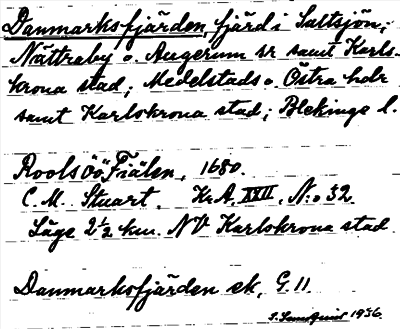 Danmarksfjärden, fjärd i Saltsjön;
Nättraby o. Augerum sr samt Karls-
krona stad; Medelstads o. Östra hdr
samt Karlskrona stad; Blekinge l.
Roolsöö Fiälen, 1680.
C. M. Stuart. Kr.A. XXII. N:o 32.
Läge 2½ km. NV Karlskrona stad.
Danmarksfjärden ek. G. 11.
1936.